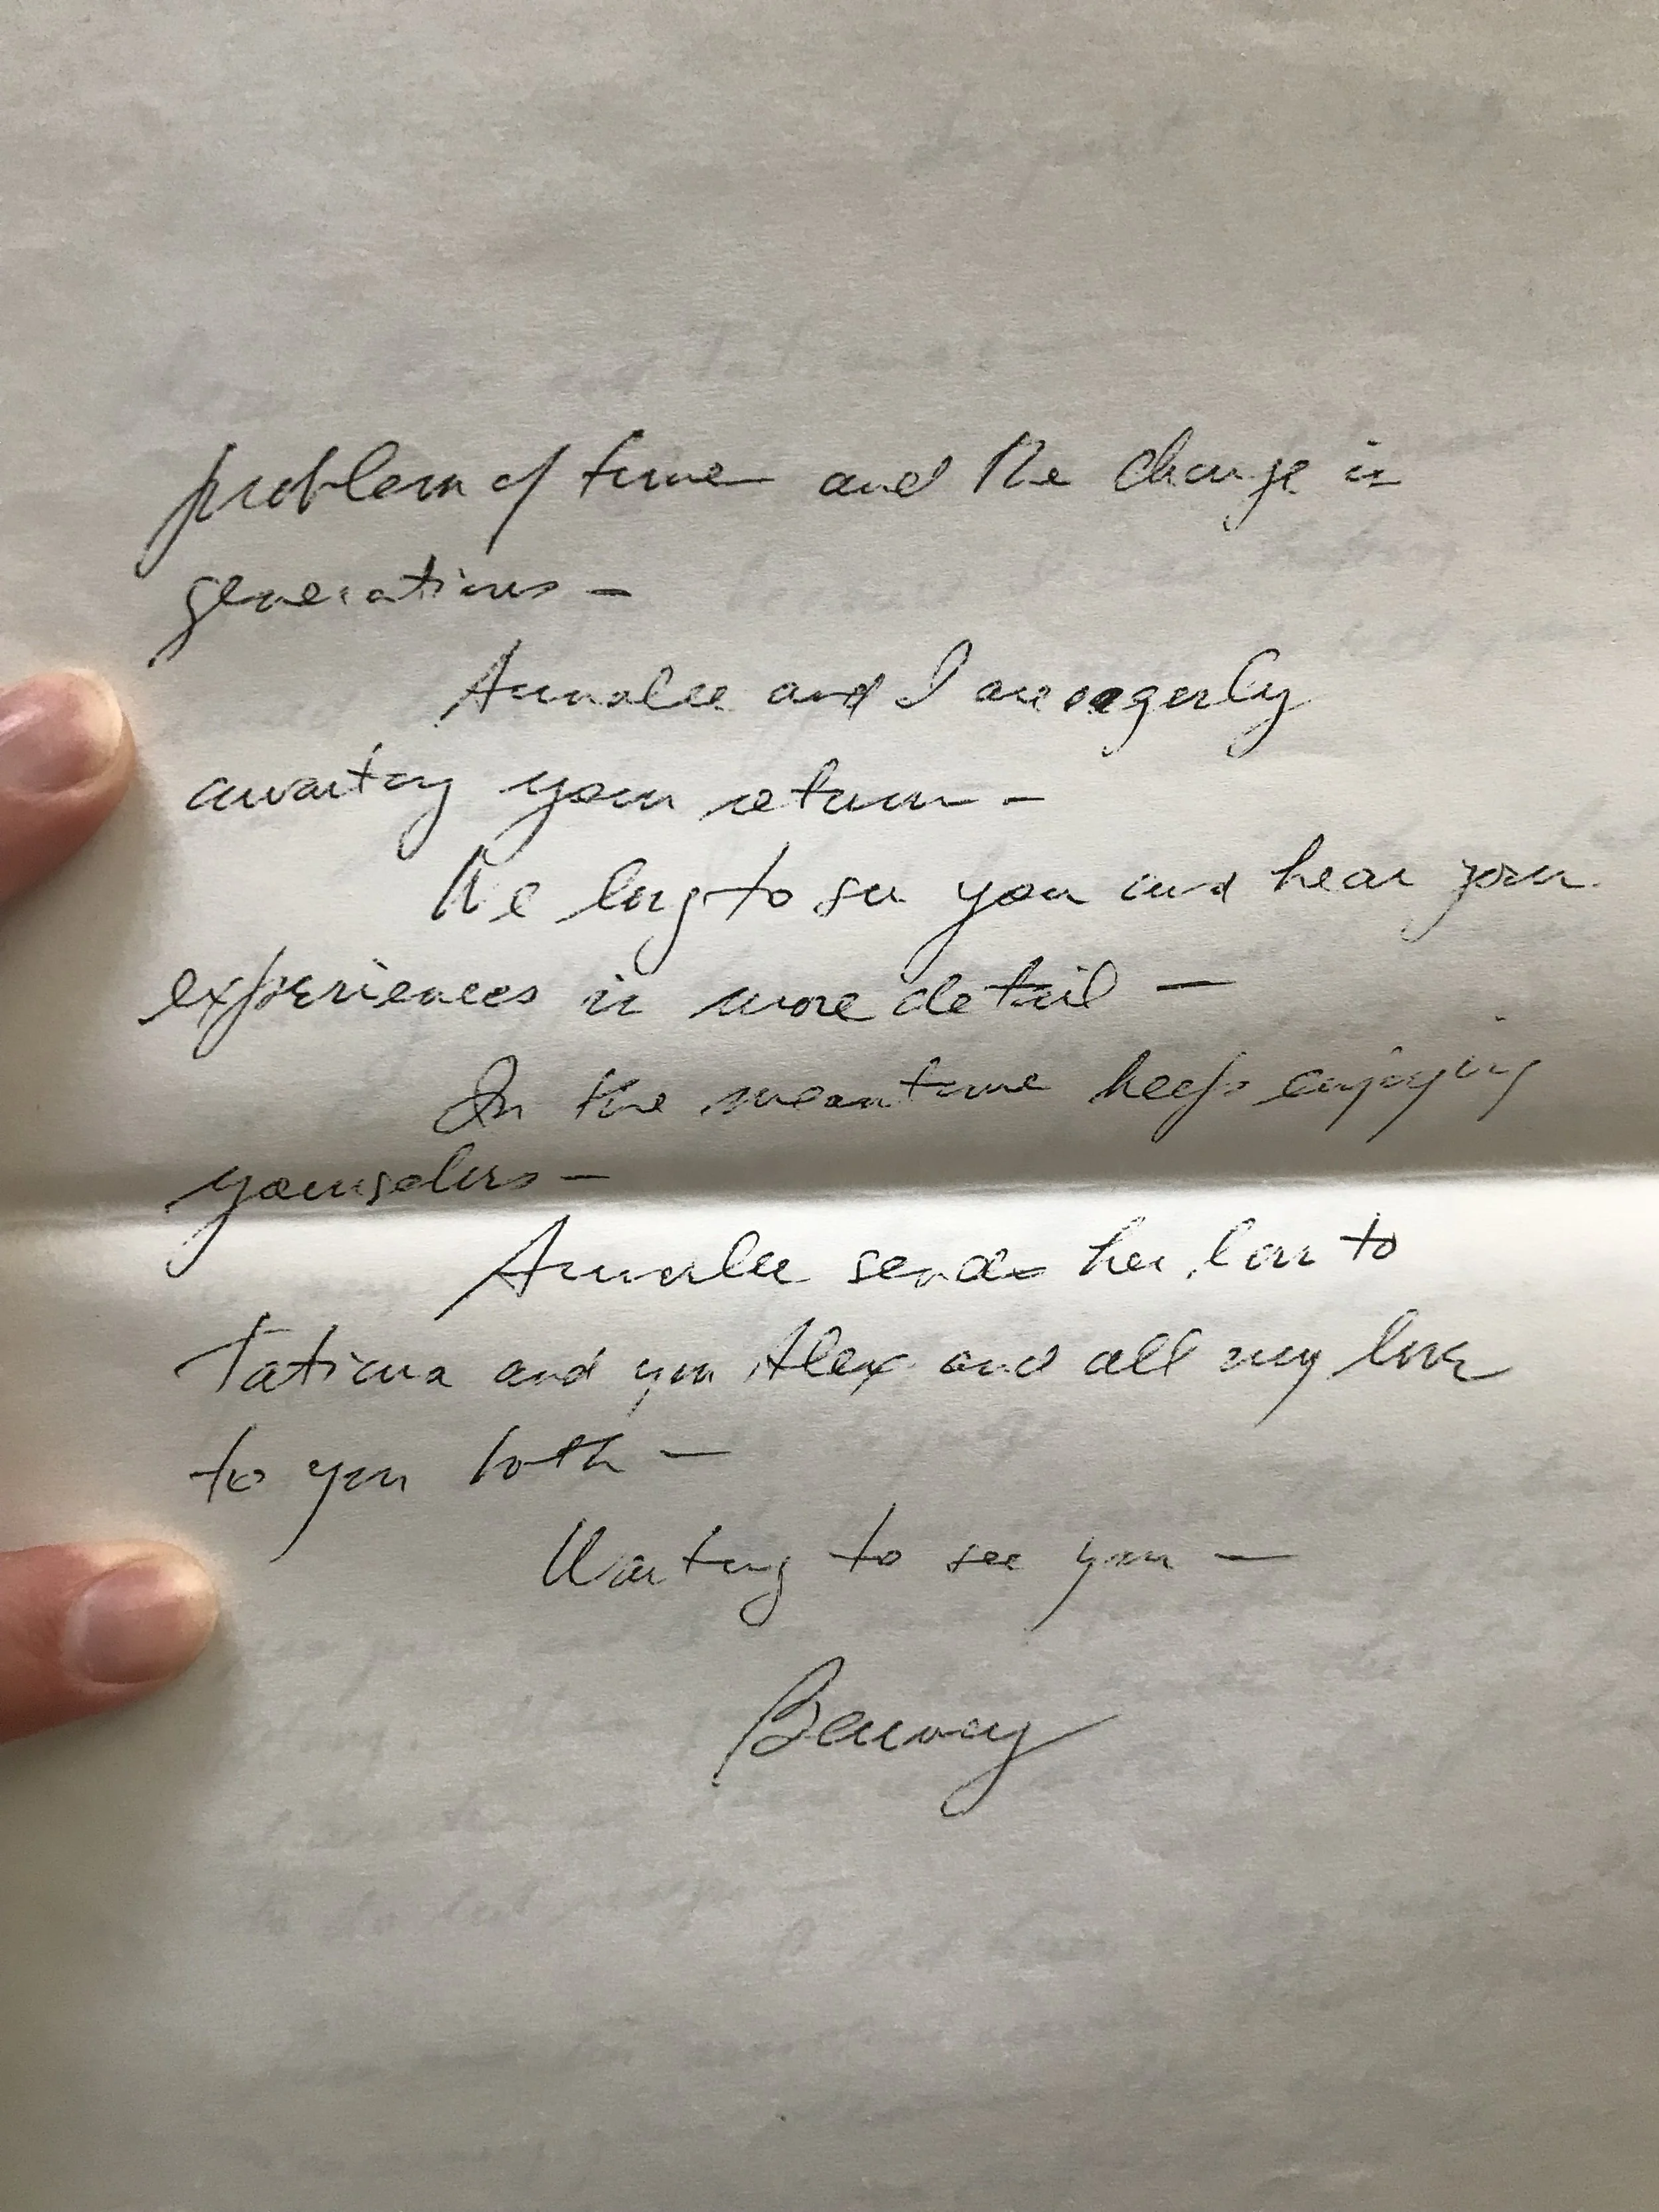 problem of time and the change in
generations –
Annalee and I are eagerly
awaiting your return –
We long to see you and hear your
experiences in more detail –
In the meantime keep enjoying
yourselves –
Annalee sends her love to
Tatiana and you Alex and all my love
to you both –
Waiting to see you –